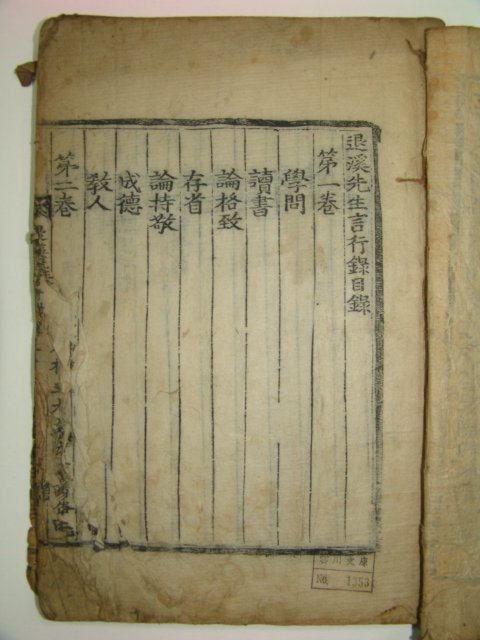 退溪先生言行錄目錄
第一卷
學問
讀書
論格致
存省
論持敬
成德
敎人
第二卷
川文庫
No. 1353